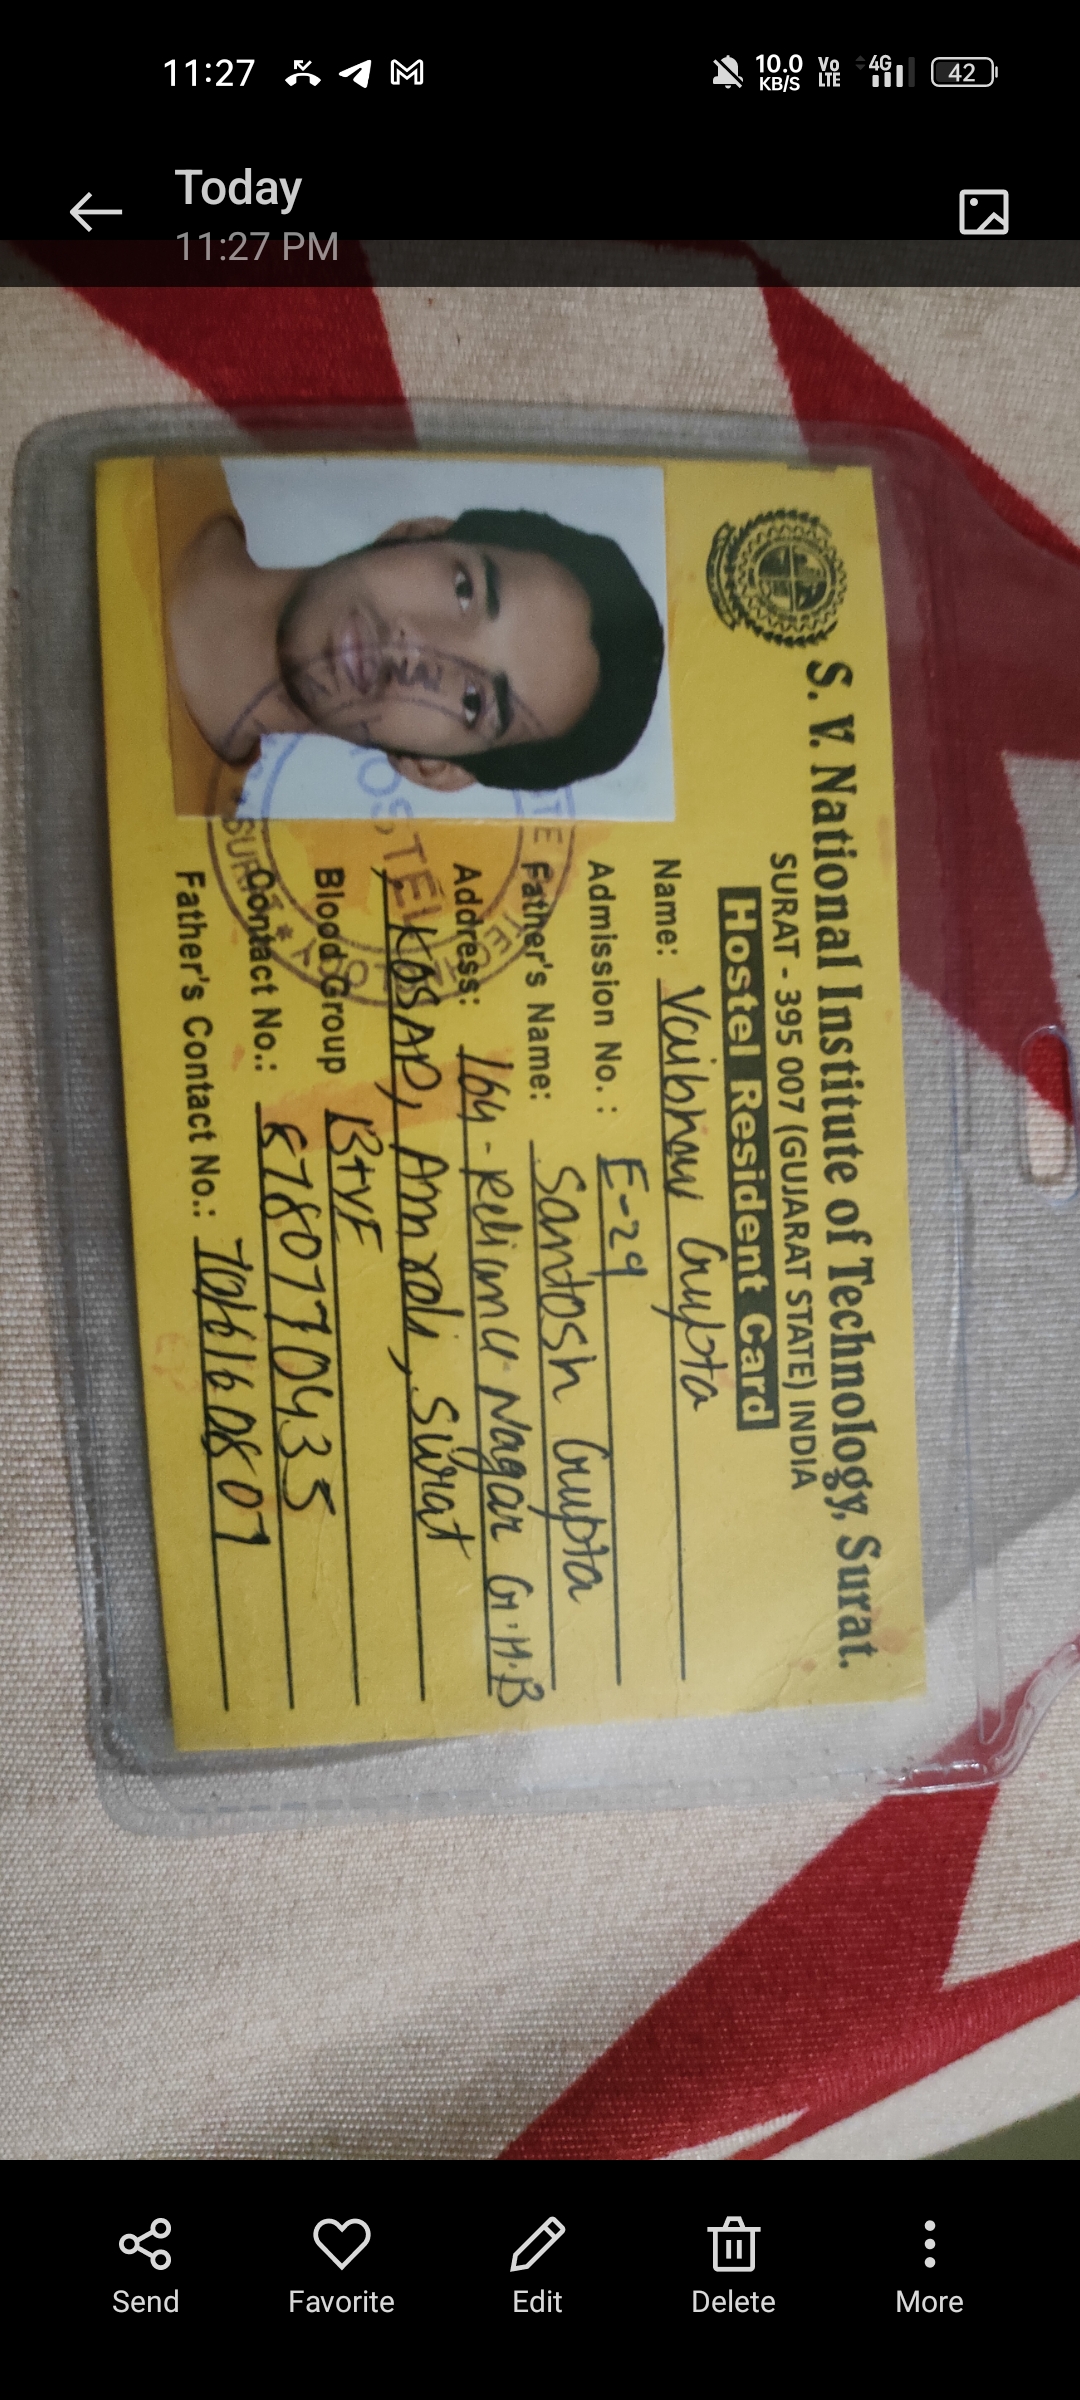 11:27
10.0 KB/S
Vo LTE
4G
42
Today
11:27 PM
S. V. National Institute of Technology, Surat.
SURAT - 395 007 (GUJARAT STATE) INDIA
Hostel Resident Card
Name: Vaibhav Gupta
Admission No. : E-29
Father's Name: Santosh Gupta
Address: 164-Reliance Nagar G.H.B
, KOSAD, Amroli, Surat
Blood Group B+VE
Contact No.: 8780770435
Father's Contact No.:
HOSTEL
SURAT
Send
Favorite
Edit
Delete
More